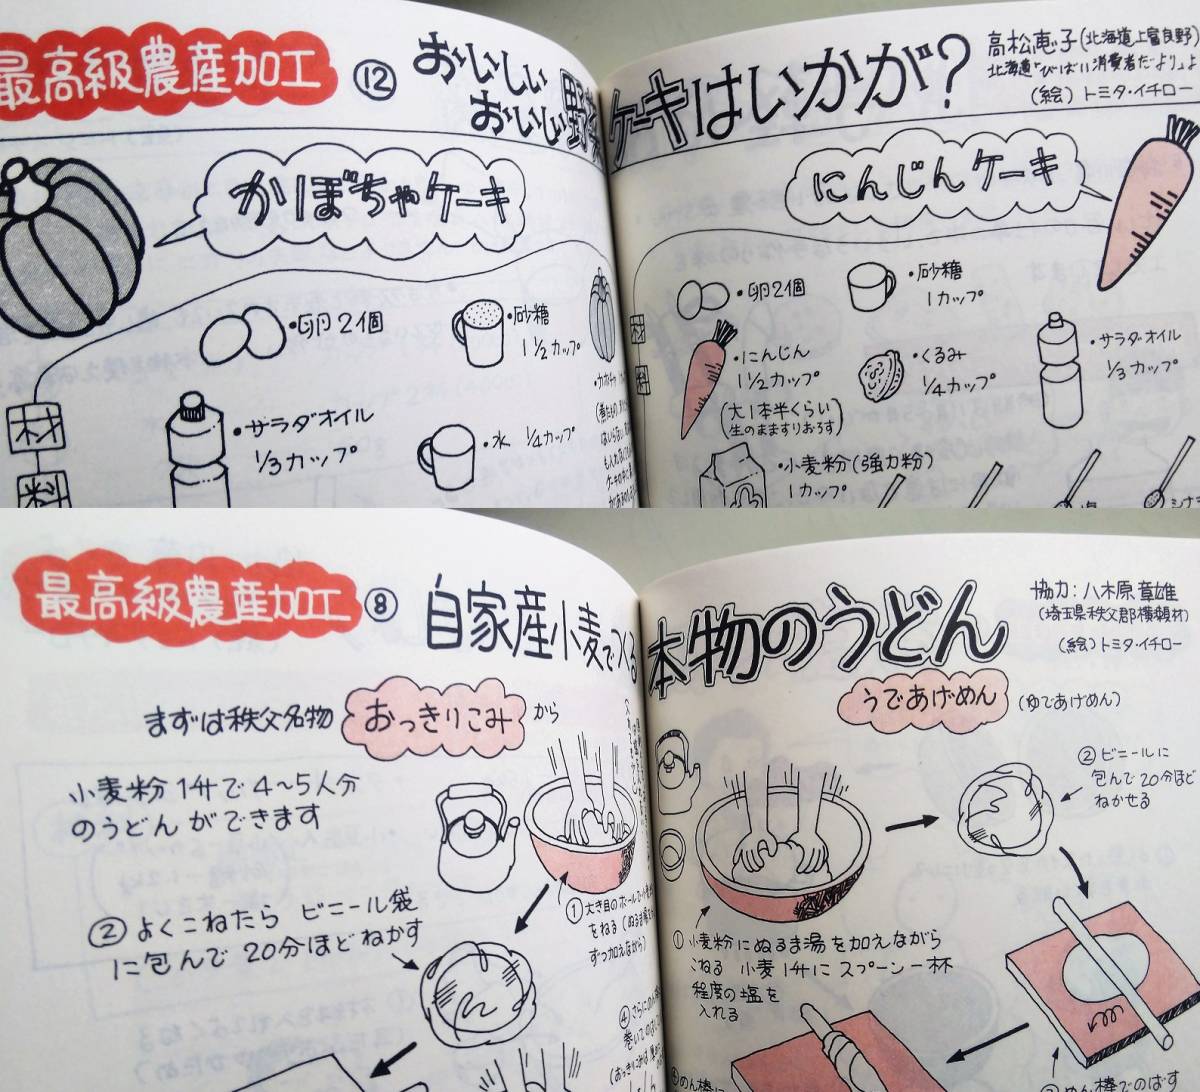 最高級農産加工 ⑫ おいしい
おいしい野菜ケーキはいかが?
高松恵子(北海道上富良野)
北海道「びばい消費者だより」よ
(絵)トミタ・イチロー
かぼちゃケーキ
材料
・卵2個
・砂糖
1 1/2カップ
・サラダオイル
1/3カップ
・水 1/4カップ
にんじんケーキ
材料
・卵2個
・砂糖
1カップ
・にんじん
1 1/2カップ
(大1本半くらい
生のまますりおろす)
・くるみ
1/4カップ
・サラダオイル
1/3カップ
・小麦粉(強力粉)
1カップ
最高級農産加工 ⑧ 自家産小麦でつくる
本物のうどん
協力:八木原章雄
(埼玉県秩父郡横瀬村)
(絵)トミタ・イチロー
まずは秩父名物 おっきりこみ から
小麦粉1升で4〜5人分
のうどんができます
①大き目のボールで小麦粉
をねる(ぬるま湯を
ずつ加えながら)
②よくこねたら ビニール袋
に包んで20分ほどねかす
うであげめん (ゆであげめん)
①小麦粉にぬるま湯を加えながら
こねる 小麦1升にスプーン一杯
程度の塩を
入れる
②ビニールに
包んで20分ほど
ねかせる